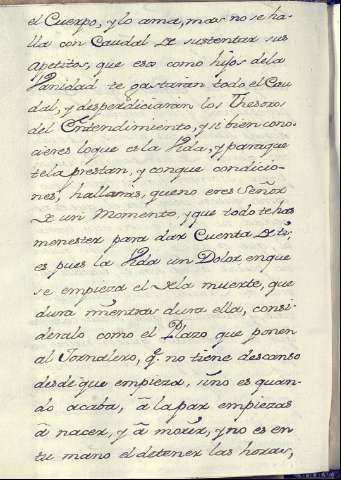 el Cuerpo, y lo ama, mas no se ha-
lla con Caudal de sustentar sus
Apetitos, que esa como hijos dela
Vanidad te gastaran todo el Cau
dal, y desperdiciaran los Thesoros
del Entendimiento, y si bien cono-
cieres loque es la Vida, y paraque
tela prestan, y conque condicio-
nes, hallarás, queno eres Señor
de un Momento, y que todo tehas
menester para dar Cuenta de ti;
es pues la Vida un Dolor enque
se empieza el dela muerte, que
dura mientras dura ella, consi-
deralo como el Plazo que ponen
al Jornalero, q. no tiene descanso
desde que empieza, sino es quan-
do acaba, â la par empiezas
â nacer, y â morir, y no es en
tu mano el detener las horas,